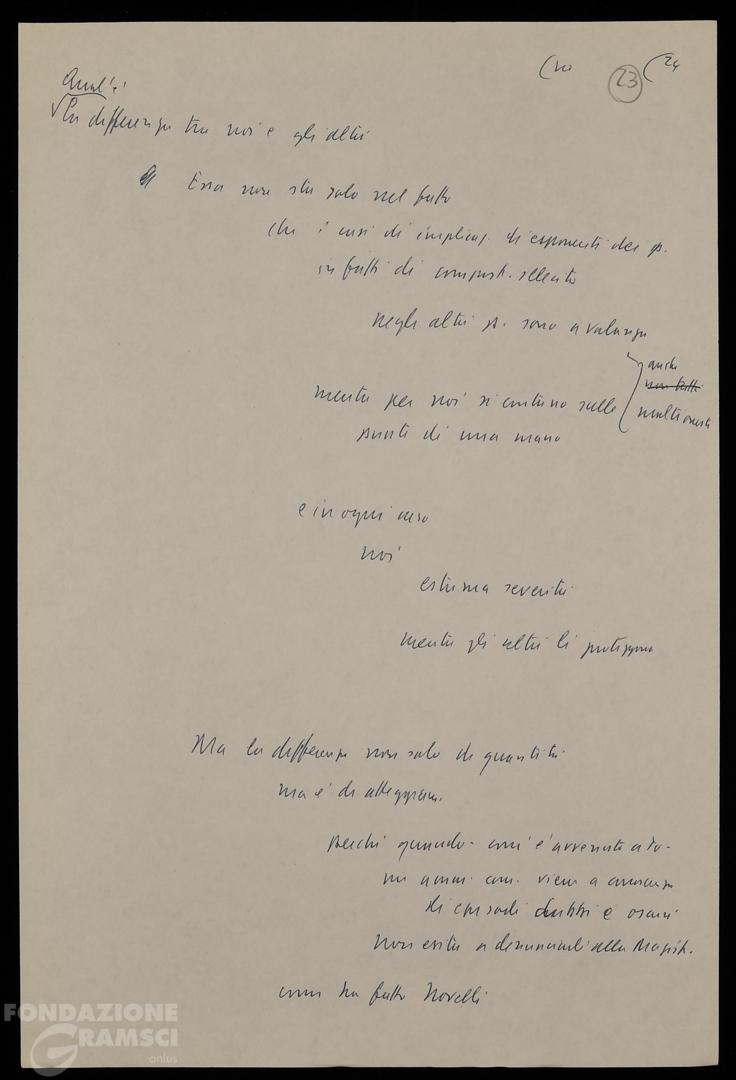 23 (24
Qual'è
la differenza tra noi e gli altri
Essa non sta solo nel fatto
che i casi di implicaz. di esponenti dei p.
in fatti di comport. illecito
negli altri p. sono a valanga
anche
mentre per noi si contano sulle
punte di una mano
e in ogni caso
noi
estrema severità
mentre gli altri li proteggono
Ma la differenza non solo di quantità
ma è di atteggiam.
perché quando - com'è avvenuto a To -
un amm. com. viene a conoscenza
di episodi dubbi e oscuri
non esita a denunciarli alla Magistr.
come ha fatto Novelli
FONDAZIONE
GRAMSCI
onlus